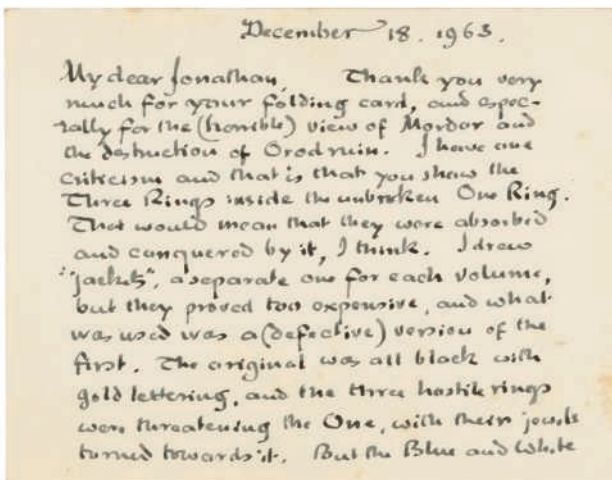 December 18. 1963.
My dear Jonathan, Thank you very
much for your folding card, and espec-
ially for the (horrible) view of Mordor and
the destruction of Orodruin. I have one
criticism and that is that you show the
Three Rings inside the unbroken One Ring.
That would mean that they were absorbed
and conquered by it, I think. I drew
"jackets", a separate one for each volume,
but they proved too expensive, and what
was used was a (defective) version of the
first. The original was all black with
gold lettering, and the three hostile rings
were threatening the One, with their jewels
turned towards it. But the Blue and White